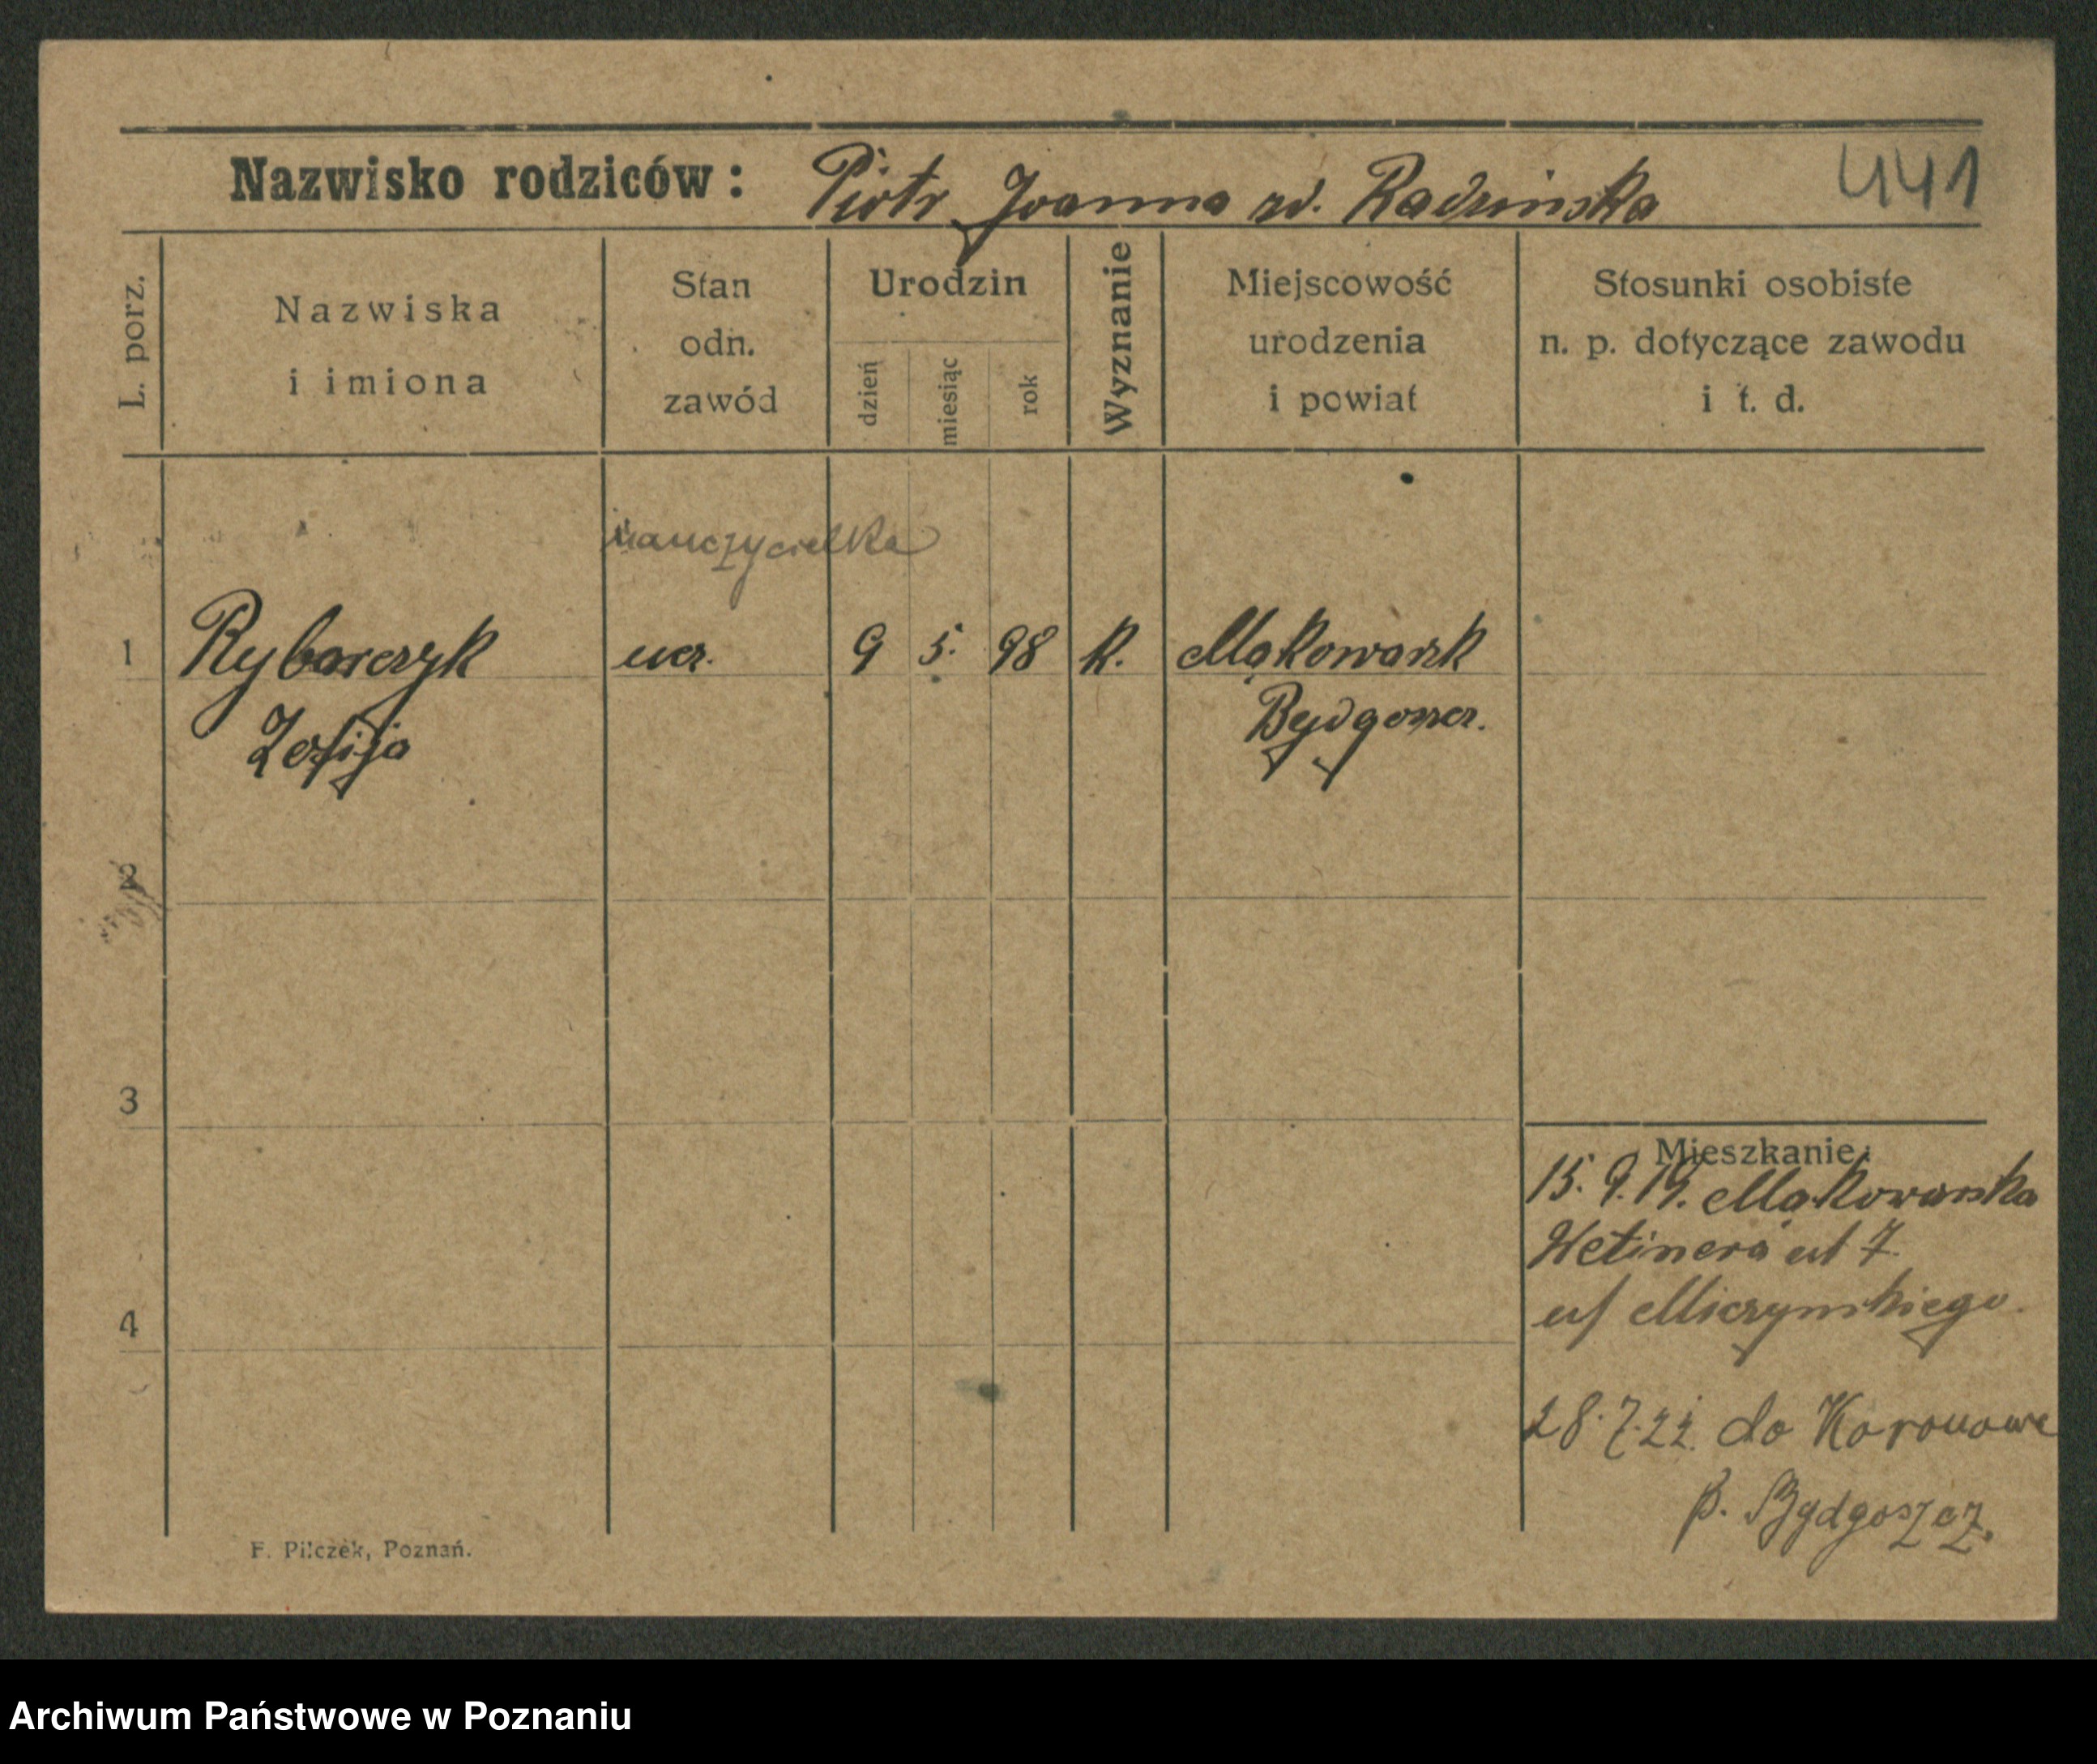 Nazwisko rodziców: Piotr Joanna zd. Radzimska
441
L. porz.
Nazwiska
i imiona
Stan
odn.
zawód
Urodzin
dzień
miesiąc
rok
Wyznanie
Miejscowość
urodzenia
i powiat
Stosunki osobiste
n. p. dotyczące zawodu
i t. d.
nauczycielka
1 Rybarczyk ucz. 9 5. 98 k. Mąkowarsk
Zofija Bydgoszcz.
2
3
4
Mieszkanie:
15. 9. 19. Mąkowarska
ul 7
ul
28.7.22. do Koronowe
p. Bydgoszcz.
F. Pilczek, Poznań.
Archiwum Państwowe w Poznaniu